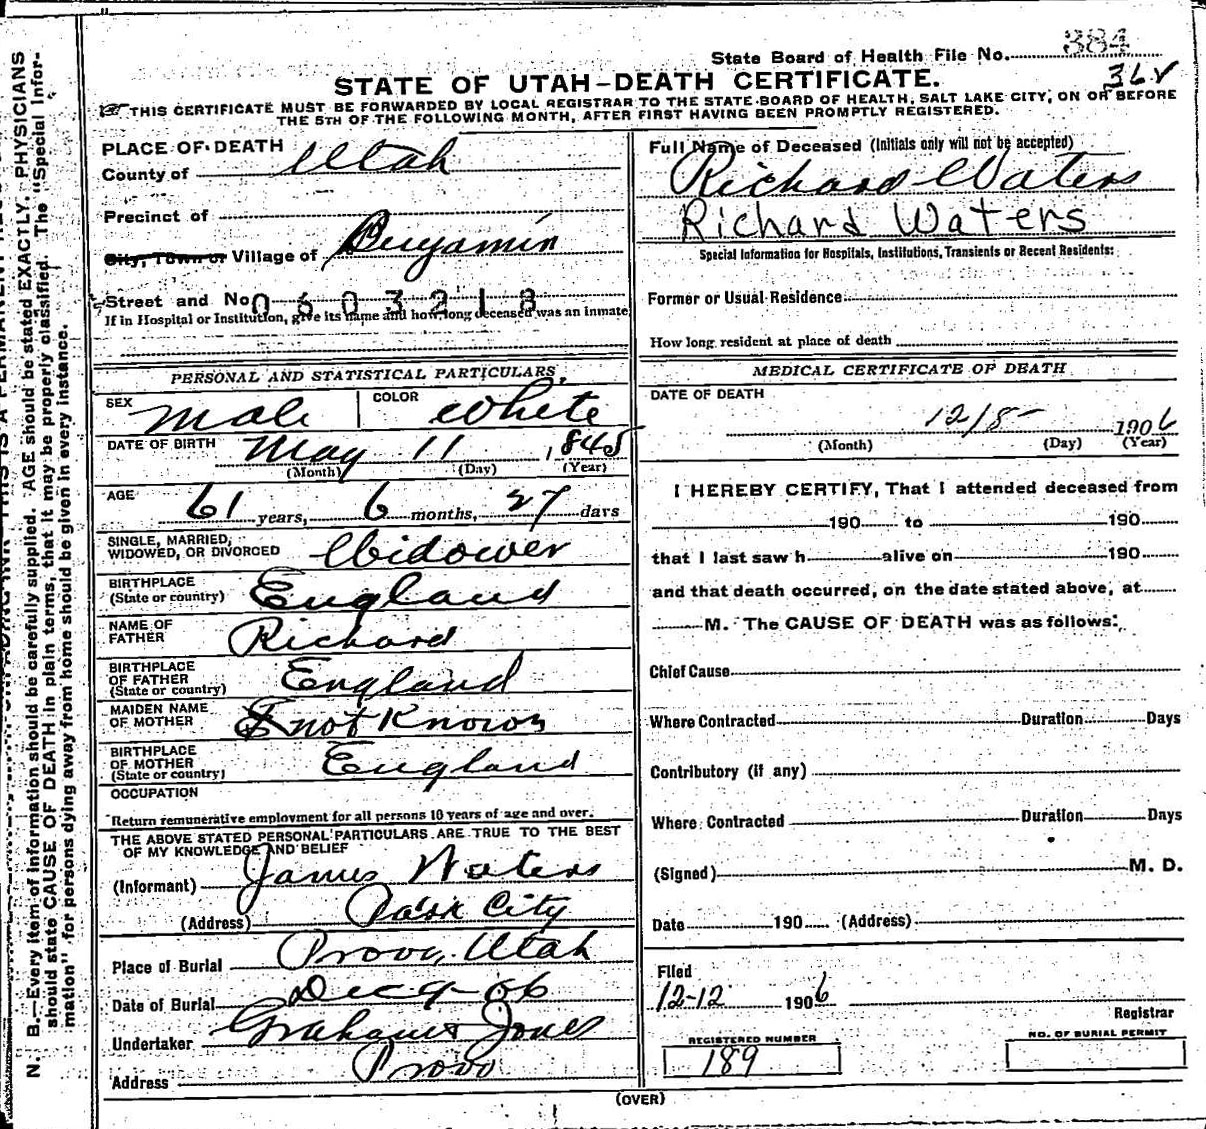 State Board of Health File No. 384
STATE OF UTAH-DEATH CERTIFICATE. 36
THIS CERTIFICATE MUST BE FORWARDED BY LOCAL REGISTRAR TO THE STATE BOARD OF HEALTH, SALT LAKE CITY, ON OR BEFORE
THE 5TH OF THE FOLLOWING MONTH, AFTER FIRST HAVING BEEN PROMPTLY REGISTERED.
PLACE OF DEATH
County of Utah
Precinct of
City, Town or Village of Benjamin
Street and No. 0603218
If in Hospital or Institution, give its name and how long deceased was an inmate
PERSONAL AND STATISTICAL PARTICULARS,
SEX Male COLOR White
DATE OF BIRTH May 11, 1845
(Month) (Day) (Year)
AGE 61 years, 6 months, 27 days
SINGLE, MARRIED,
WIDOWED, OR DIVORCED Widower
BIRTHPLACE
(State or country) England
NAME OF
FATHER Richard
BIRTHPLACE
OF FATHER
(State or country) England
MAIDEN NAME
OF MOTHER not Known
BIRTHPLACE
OF MOTHER
(State or country) England
OCCUPATION
Return remunerative employment for all persons 10 years of age and over.
THE ABOVE STATED PERSONAL PARTICULARS ARE TRUE TO THE BEST
OF MY KNOWLEDGE AND BELIEF
(Informant) James Waters
(Address) Park City
Place of Burial Provo, Utah
Date of Burial Dec 9-06
Undertaker Graham & Jones
Address Provo
Full Name of Deceased (Initials only will not be accepted)
Richard Waters
Richard Waters
Special Information for Hospitals, Institutions, Transients or Recent Residents:
Former or Usual Residence
How long resident at place of death
MEDICAL CERTIFICATE OF DEATH
DATE OF DEATH
12/8 1906
(Month) (Day) (Year)
I HEREBY CERTIFY, That I attended deceased from
190 to 190
that I last saw h alive on 190
and that death occurred, on the date stated above, at
M. The CAUSE OF DEATH was as follows:
Chief Cause
Where Contracted Duration Days
Contributory (if any)
Where Contracted Duration Days
(Signed) M. D.
Date 190 (Address)
Filed
12-12 1906
Registrar
REGISTERED NUMBER
189
NO. OF BURIAL PERMIT
(OVER)
N. B.—Every item of information should be carefully supplied. AGE should be stated EXACTLY. PHYSICIANS
should state CAUSE OF DEATH in plain terms, that it may be properly classified. The "Special Infor-
mation" for persons dying away from home should be given in every instance.